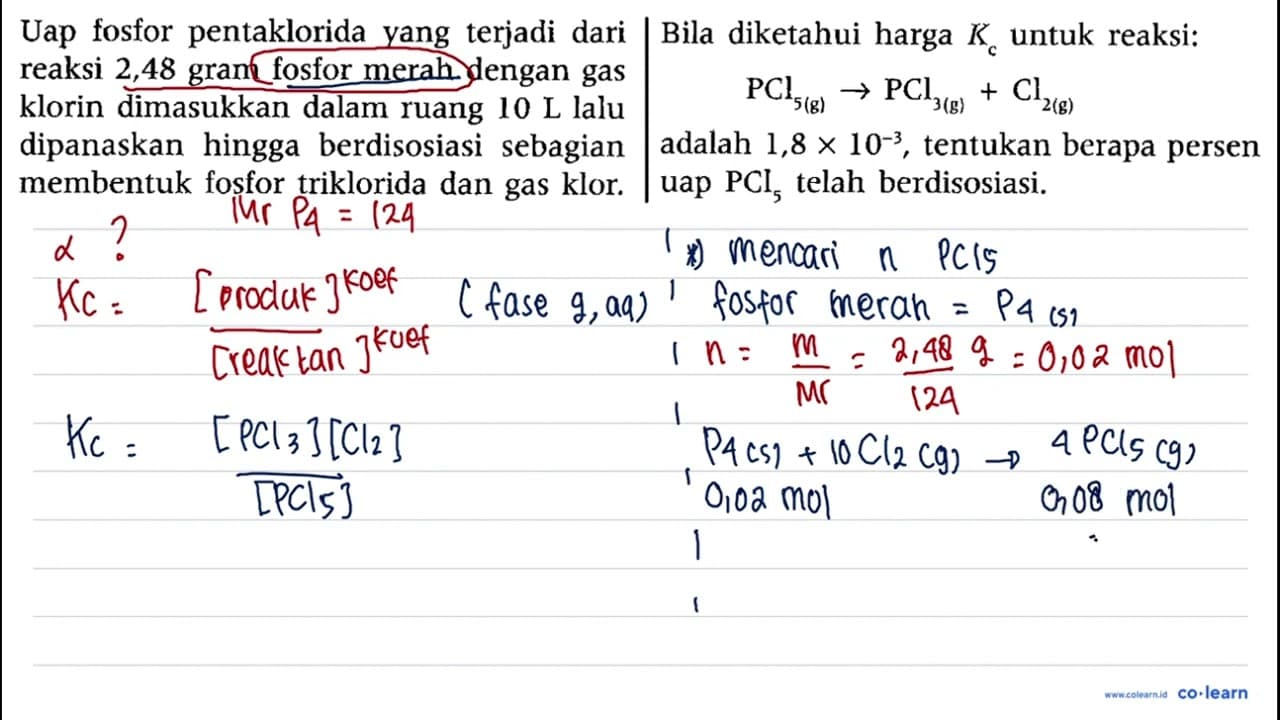 Uap fosfor pentaklorida yang terjadi dari
reaksi 2,48 gram fosfor merah dengan gas
klorin dimasukkan dalam ruang 10 L lalu
dipanaskan hingga berdisosiasi sebagian
membentuk fosfor triklorida dan gas klor.
Bila diketahui harga Kc untuk reaksi:
PCl5(g) → PCl3(g) + Cl2(g)
adalah 1,8 × 10⁻³, tentukan berapa persen
uap PCl5 telah berdisosiasi.
Mr P4 = 124
α ?
Kc = [produk]^koef
[reaktan]^koef
(fase g, aq)
Kc = [PCl3][Cl2]
[PCl5]
*) mencari n PCl5
fosfor merah = P4 (s)
n = m = 2,48 g = 0,02 mol
Mr 124
P4 (s) + 10 Cl2 (g) → 4 PCl5 (g)
0,02 mol 0,08 mol
www.colearn.id co·learn